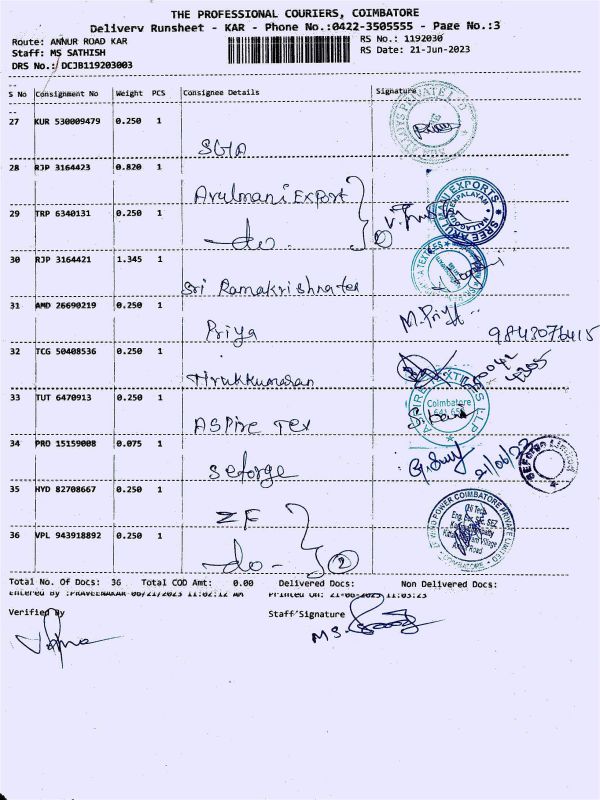 THE PROFESSIONAL COURIERS, COIMBATORE
Delivery Runsheet - KAR - Phone No.:0422-3505555 - Page No.:3
Route: ANNUR ROAD KAR RS No.: 1192030
Staff: MS SATHISH RS Date: 21-Jun-2023
DRS No.: DCJB119203003
S No Consignment No Weight PCS Consignee Details Signature
27 KUR 530009479 0.250 1
28 RJP 3164423 0.820 1
Arulmani Export
29 TRP 6340131 0.250 1
do
30 RJP 3164421 1.345 1
Sri Ramakrishna tex
31 AMD 26690219 0.250 1
Priya M. Priya
9843076415
32 TCG 50408536 0.250 1
Tirukkumaran
33 TUT 6470913 0.250 1
ASPire Tex
34 PRO 15159008 0.075 1
Seforge 21/06/23
35 HYD 82708667 0.250 1
ZF
36 VPL 943918892 0.250 1
do 2
SREE ARULMANI EXPORTS
Coimbatore
WIND POWER COIMBATORE PRIVATE LIMITED
Total No. Of Docs: 36 Total COD Amt: 0.00 Delivered Docs: Non Delivered Docs:
Entered By :PRAVEENAKAR 06/21/2023 11:02:12 AM Printed On: 21-06-2023 11:03:23
Verified By Staff'Signature